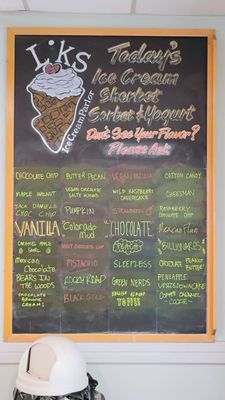 Lik's
Ice Cream Parlor
Today's
Ice Cream
Sherbet
Sorbet & Yogurt
Don't See Your Flavor?
Please Ask
CHOCOLATE CHIP
MAPLE WALNUT
JACK DANIELS
CHOC CHIP
VANILLA
CARAMEL APPLE A
Mexican
Chocolate
BEARS IN
THE WOODS
CHOCOLATE
BROWNIE
CREAM
BUTTER PECAN
VEGAN CHOCOLATE
SALTY
PUMPKIN
Colorado
mud
MINT CHOCOLATE CHIP
PISTACHIO
ROCKY ROAD
BLACK GOLD
VEGAN VANILLA
WILD RASPBERRY
CHEESECAKE
STRAWBERRY
CHOCOLATE
SLEEPLESS
GREEN NERDS
TOFFEE
COTTON CANDY
RASPBERRY
CHOCOLATE CHIP
BILLIONAIRES
CHOCOLATE PEANUT
BUTTER
PINEAPPLE
UPSIDEDOWNCAKE
COOKIE